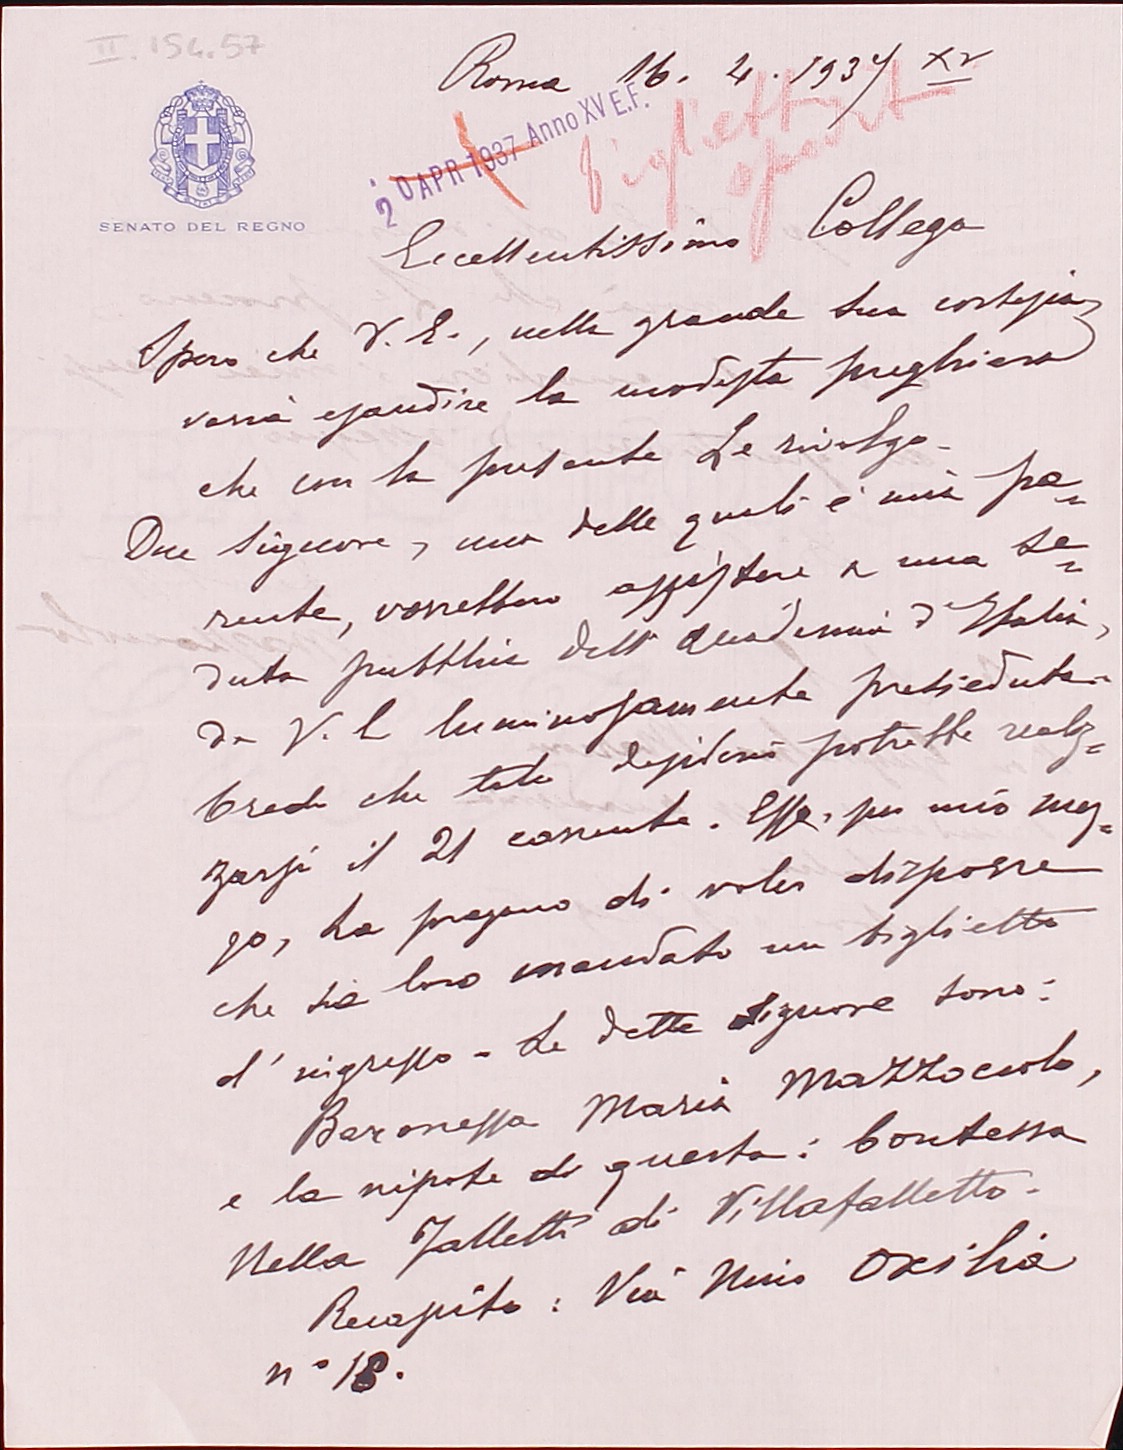 II. 154.57
Roma 16. 4. 1937 XV
20 APR 1937 Anno XV E.F.
biglietti
spediti
SENATO DEL REGNO
Eccellentissimo Collega
Spero che V. E., nella grande sua cortesia,
vorrà esaudire la modesta preghiera
che con la presente Le rivolgo.
Due signore, una delle quali è mia pa=
rente, vorrebbero assistere a una se=
duta pubblica dell'Accademia d'Italia,
da V. E. luminosamente presieduta.
Credo che tale desiderio potrebbe realiz=
zarsi il 21 corrente. Esse, per mio mez=
zo, La pregano di voler disporre
che sia loro mandato un biglietto
d'ingresso - Le dette signore sono:
Baronessa Maria Mazzoccolo,
e la nipote di questa: Contessa
Nella Falletti di Villafalletto.
Recapito: Via Nino Oxilia
n° 18.